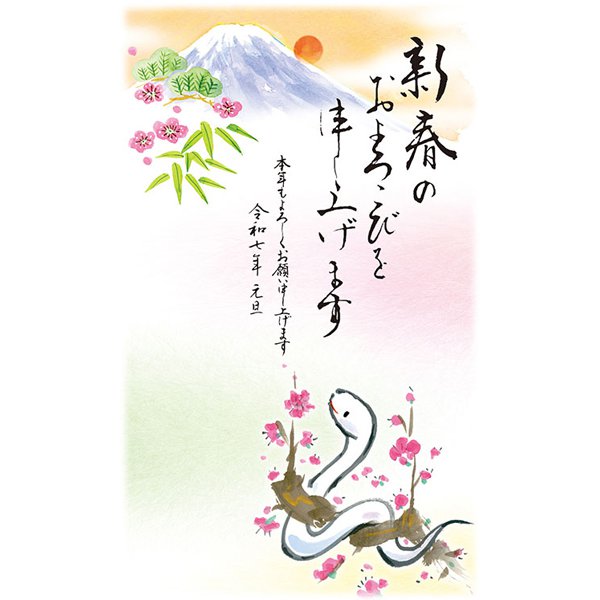 新春の
およろこびを
申し上げます
本年もよろしくお願い申し上げます
令和七年 元旦